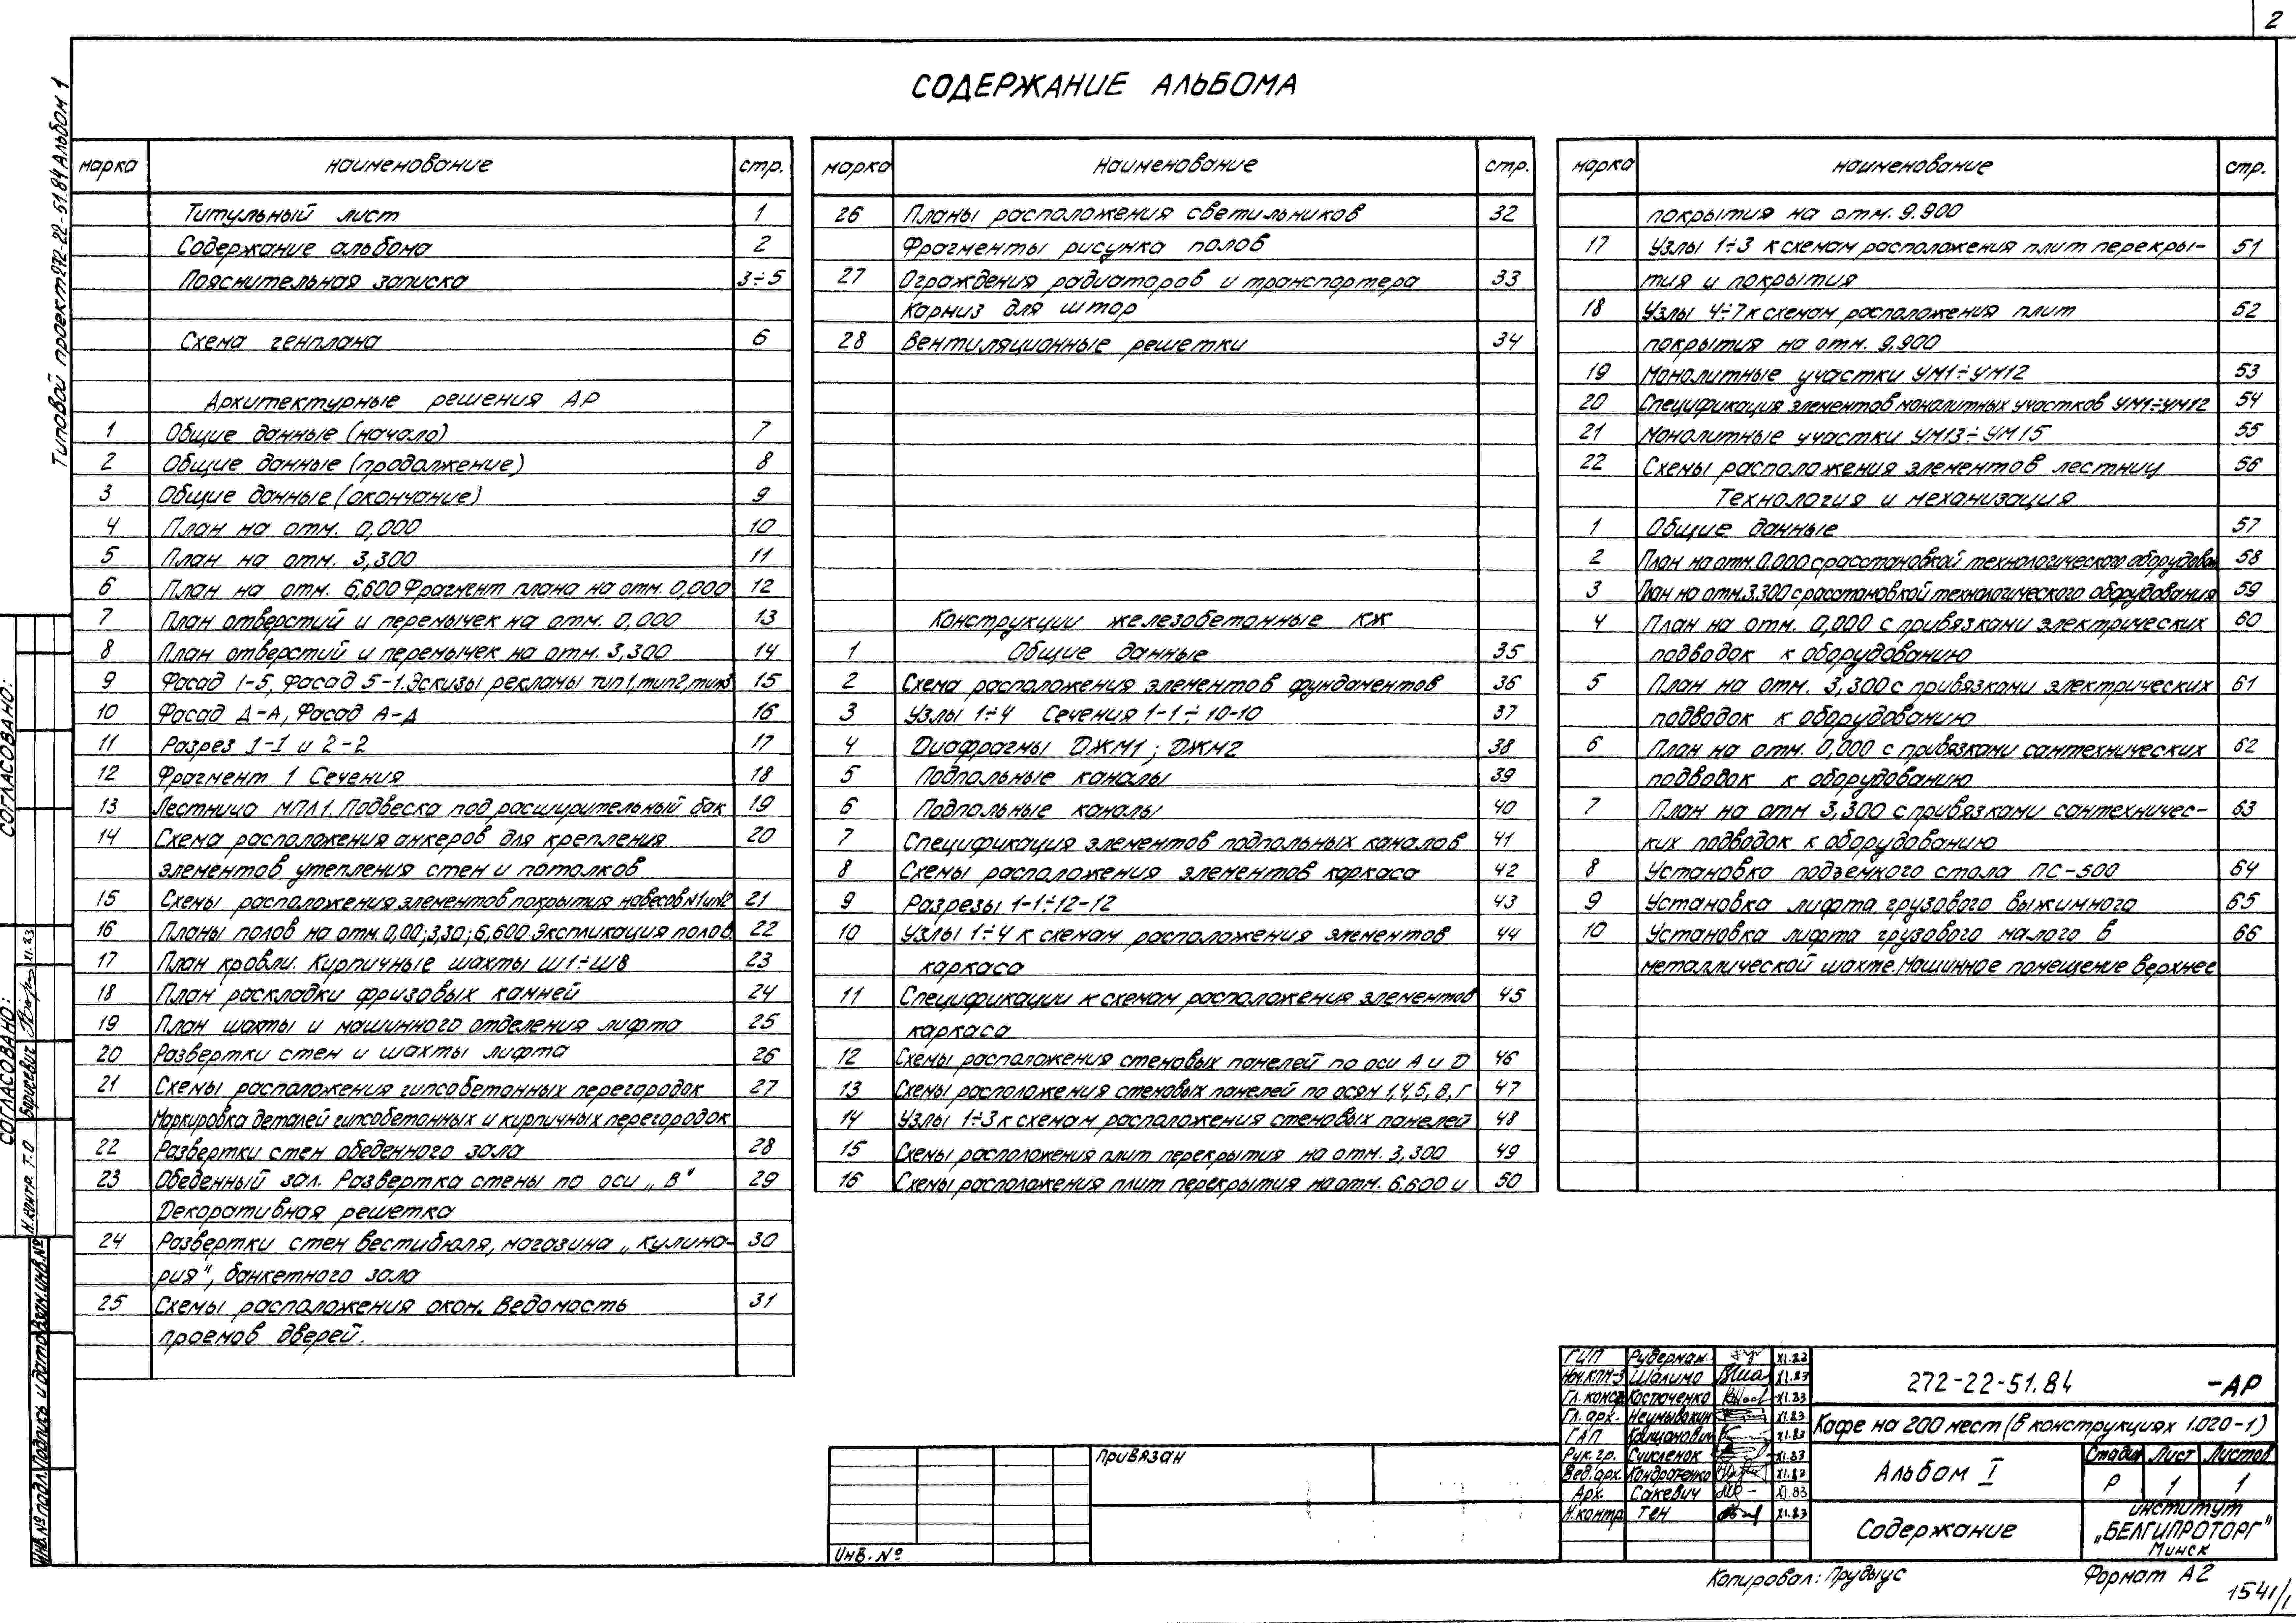 2
СОДЕРЖАНИЕ АЛЬБОМА
Типовой проект 272-22-51.84 Альбом 1
марка наименование стр.
Титульный лист 1
Содержание альбома 2
Пояснительная записка 3÷5
Схема генплана 6
Архитектурные решения АР
1 Общие данные (начало) 7
2 Общие данные (продолжение) 8
3 Общие данные (окончание) 9
4 План на отм. 0,000 10
5 План на отм. 3,300 11
6 План на отм. 6,600 Фрагмент плана на отм. 0,000 12
7 План отверстий и перемычек на отм. 0,000 13
8 План отверстий и перемычек на отм. 3,300 14
9 Фасад 1-5, Фасад 5-1. Эскизы рекламы тип1, тип2, тип3 15
10 Фасад Д-А, Фасад А-Д 16
11 Разрез 1-1 и 2-2 17
12 Фрагмент 1 Сечения 18
13 Лестница МПЛ1. Подвеска под расширительный бак 19
14 Схема расположения анкеров для крепления 20
элементов утепления стен и потолков
15 Схемы расположения элементов покрытия навесов №1 и №2 21
16 Планы полов на отм. 0,00; 3,30; 6,600. Экспликация полов 22
17 План кровли. Кирпичные шахты Ш1÷Ш8 23
18 План раскладки фризовых камней 24
19 План шахты и машинного отделения лифта 25
20 Развертки стен и шахты лифта 26
21 Схемы расположения гипсобетонных перегородок 27
Маркировка деталей гипсобетонных и кирпичных перегородок
22 Развертки стен обеденного зала 28
23 Обеденный зал. Развертка стены по оси „В" 29
Декоративная решетка
24 Развертки стен вестибюля, магазина „Кулина- 30
рия", банкетного зала
25 Схемы расположения окон. Ведомость 31
проемов дверей.
марка наименование стр.
26 Планы расположения светильников 32
Фрагменты рисунка полов
27 Ограждения радиаторов и транспортера 33
Карниз для штор
28 Вентиляционные решетки 34
Конструкции железобетонные КЖ
1 Общие данные 35
2 Схема расположения элементов фундаментов 36
3 Узлы 1÷4 Сечения 1-1÷10-10 37
4 Диафрагмы ДЖМ1; ДЖМ2 38
5 Подпольные каналы 39
6 Подпольные каналы 40
7 Спецификация элементов подпольных каналов 41
8 Схемы расположения элементов каркаса 42
9 Разрезы 1-1÷12-12 43
10 Узлы 1÷4 к схемам расположения элементов 44
каркаса
11 Спецификации к схемам расположения элементов 45
каркаса
12 Схемы расположения стеновых панелей по оси А и D 46
13 Схемы расположения стеновых панелей по осям 1,4,5,В,Г 47
14 Узлы 1÷3 к схемам расположения стеновых панелей 48
15 Схемы расположения плит перекрытия на отм. 3,300 49
16 Схемы расположения плит перекрытия на отм. 6.600 и 50
марка наименование стр.
покрытия на отм. 9.900
17 Узлы 1÷3 к схемам расположения плит перекры- 51
тия и покрытия
18 Узлы 4÷7 к схемам расположения плит 52
покрытия на отм. 9,900
19 Монолитные участки УМ1÷УМ12 53
20 Спецификация элементов монолитных участков УМ1÷УМ12 54
21 Монолитные участки УМ13÷УМ15 55
22 Схемы расположения элементов лестниц 56
Технология и механизация
1 Общие данные 57
2 План на отм. 0.000 с расстановкой технологического оборудован. 58
3 План на отм. 3,300 с расстановкой технологического оборудования 59
4 План на отм. 0,000 с привязками электрических 60
подводок к оборудованию
5 План на отм. 3,300 с привязками электрических 61
подводок к оборудованию
6 План на отм. 0,000 с привязками сантехнических 62
подводок к оборудованию
7 План на отм 3,300 с привязками сантехничес- 63
ких подводок к оборудованию
8 Установка подъемного стола ПС-500 64
9 Установка лифта грузового выжимного 65
10 Установка лифта грузового малого в 66
металлической шахте. Машинное помещение верхнее
СОГЛАСОВАНО:
СОГЛАСОВАНО:
Н.контр. Т.О Борисевич XI.83
Инв.№подл. Подпись и дата Взам.инв.№
Привязан
Инв. №
ГИП Рудерман XI.83
Нач.КПМ-3 Шалимо XI.83
Гл. констр. Костюченко XI.83
Гл. арх. Неумывакин XI.83
ГАП XI.83
Рук. гр. Счисленок XI.83
Вед. арх. Кондратенко XI.83
Арх. Сакевич XI.83
Н.контр Тен XI.83
272-22-51.84 -АР
Кафе на 200 мест (в конструкциях 1.020-1)
Альбом I
Стадия Лист Листов
Р 1 1
Содержание
институт
„БЕЛГИПРОТОРГ"
Минск
Копировал: Прудыус
Формат А2
1541/1